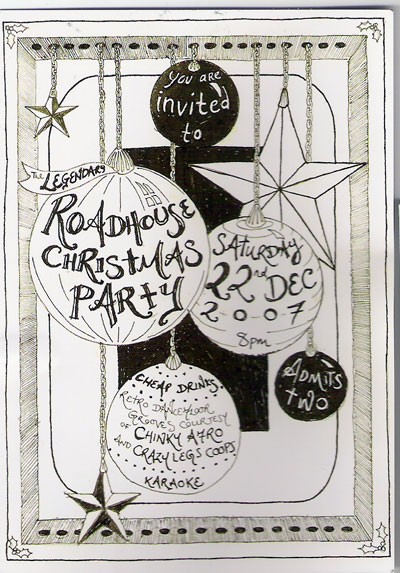 You are
invited
to
The LEGENDARY
ROADHOUSE
CHRISTMAS
PARTY
SATURDAY
22nd DEC
2-0-0-7
8pm
ADMITS
TWO
CHEAP DRINKS
RETRO DANCEFLOOR
GROOVES COURTESY
OF CHINKY AFRO
AND CRAZY LEGS COOPS
KARAOKE